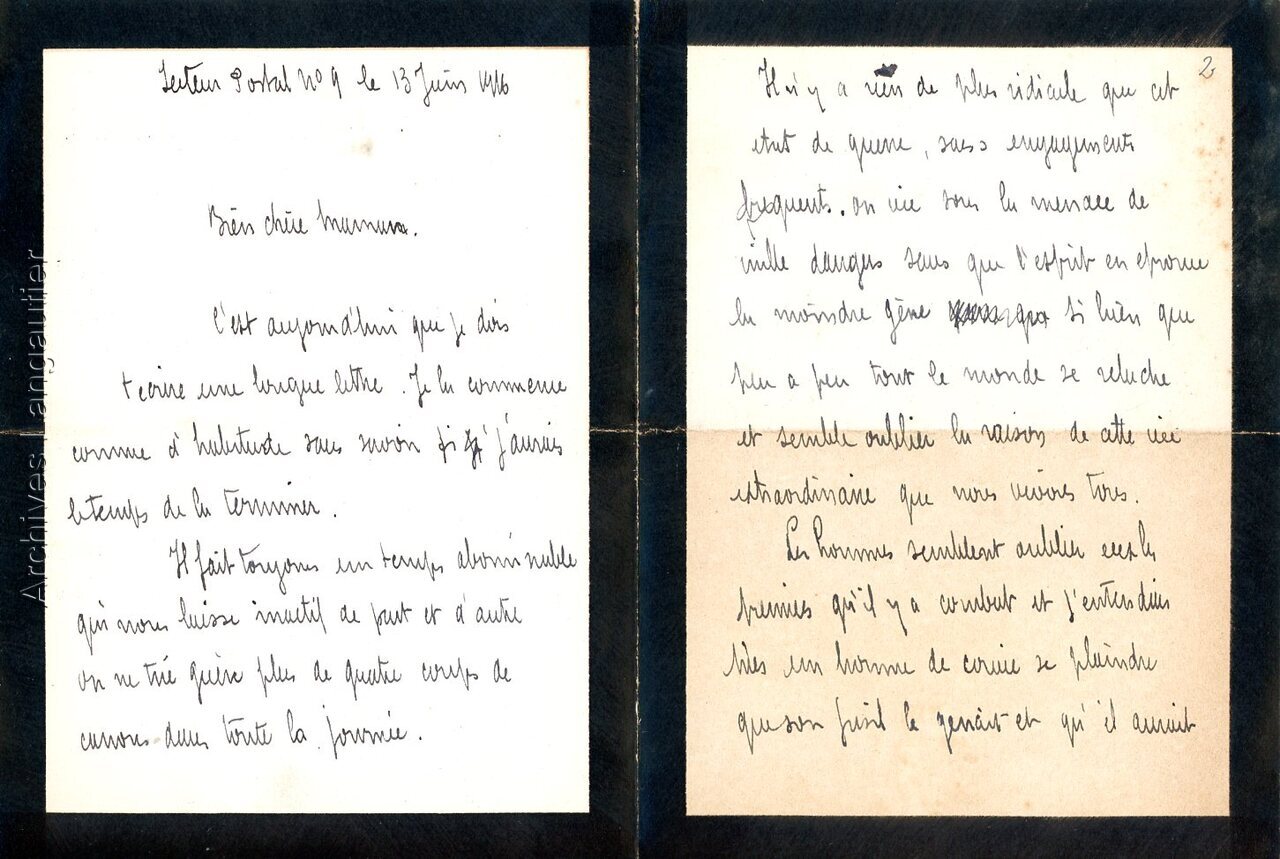 Secteur Postal No 9 le 13 Juin 1916
Bien chère Maman.
C'est aujourd'hui que je dois
t ecrire une longue lettre. Je la commence
comme d'habitude sans savoir si j'aurais
le temps de la terminer.
Il fait toujours un temps abominable
qui nous laisse inactif de part et d'autre
on ne tire guère plus de quatre coups de
canons dans toute la journée.
2
Il n'y a rien de plus ridicule que cet
etat de guerre, sans engagements
frequents. on vie sous la menace de
mille dangers sans que l'esprit en eprouve
la moindre gêne si bien que
peu a peu tout le monde se relache
et semble oublier la raison de cette vie
extraordinaire que nous vivons tous.
Les hommes semblent oublier les
premiers qu'il y a combat et j'entendais
hies un homme de corvée se plaindre
que son fusil le genait et qu'il aurait
Archives Langautier